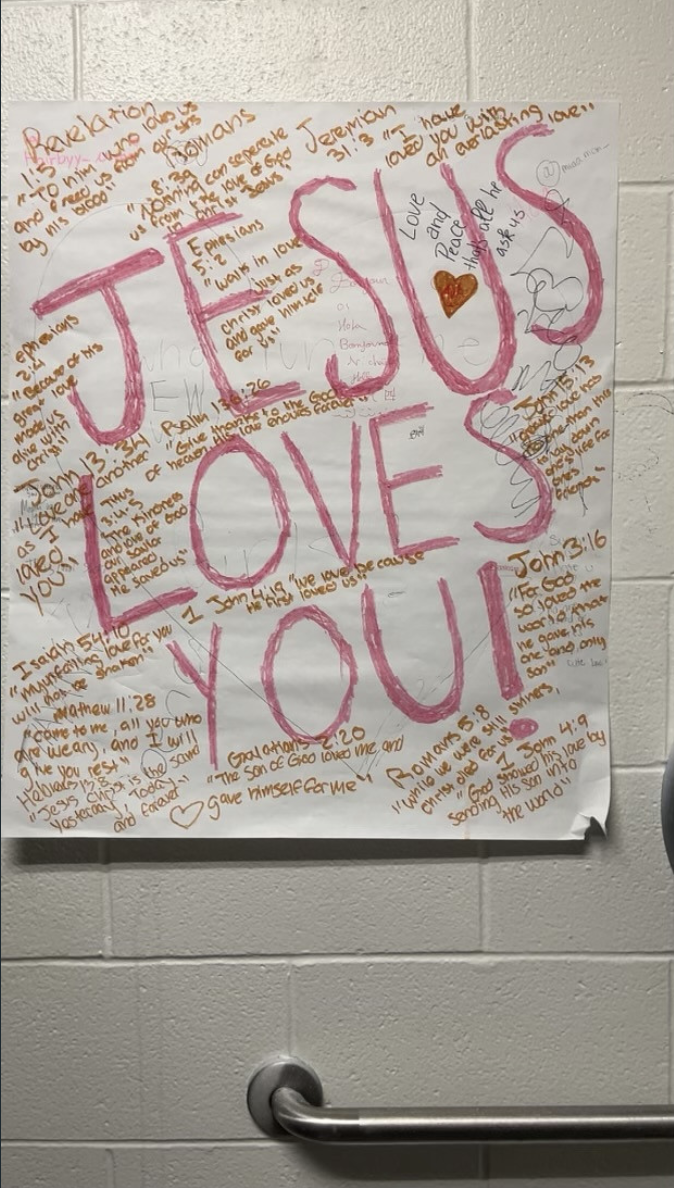 Revelation
1:5
"To him who loves us
and freed us from our sins
by his blood"
Romans
8:39
"Nothing can seperate
us from the love of God
in Christ Jesus"
Jeremiah
31:3 "I have
loved you with
an everlasting love"
JESUS
Love
and
Peace
thats all he
ask us
Ephesians
5:2
"walk in love
just as
christ loved us
and gave himself
for us"
ephesians
2:4
"Because of his
great love
made us
alive with
Christ"
Hola
Psalm 136:26
"Give thanks to the God
of heaven His love endures forever"
John 15:13
love has
than this
lay down
ones life for
friends"
John 13:34
"Love one another
as I have
loved
you"
LOVES
Titus
3:4-5
"The Kindness
and love of God
our savior
appeared
He saved us"
1 John 4:19 "we love because
He first loved us"
John 3:16
"For God
so loved the
world that
he gave his
one and only
son"
YOU!
Isaiah 54:10
"my unfailing love for you
will not be shaken"
Mathew 11:28
"Come to me, all you who
are weary, and I will
give you rest"
Hebrews 13:8
"Jesus Christ is the same
yesterday, Today,
and forever"
Galatians 2:20
"The Son of God loved me and
gave himself for me"
Romans 5:8
"While we were still sinners,
christ died for us"
1 John 4:9
"God showed his love by
sending His son into
the world"